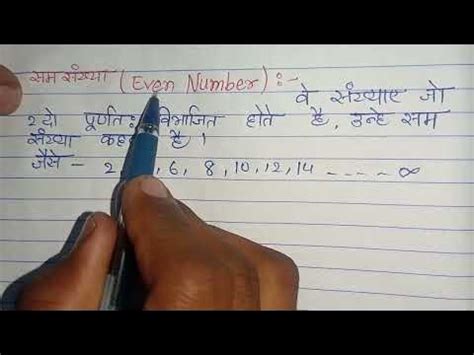 सम संख्या (Even Number) :-
वे संख्याए जो
2 दो पूर्णतः विभाजित होते है, उन्हे सम
संख्या कह है ।
जैसे - 2 , 6, 8, 10, 12, 14 - - - - ∞